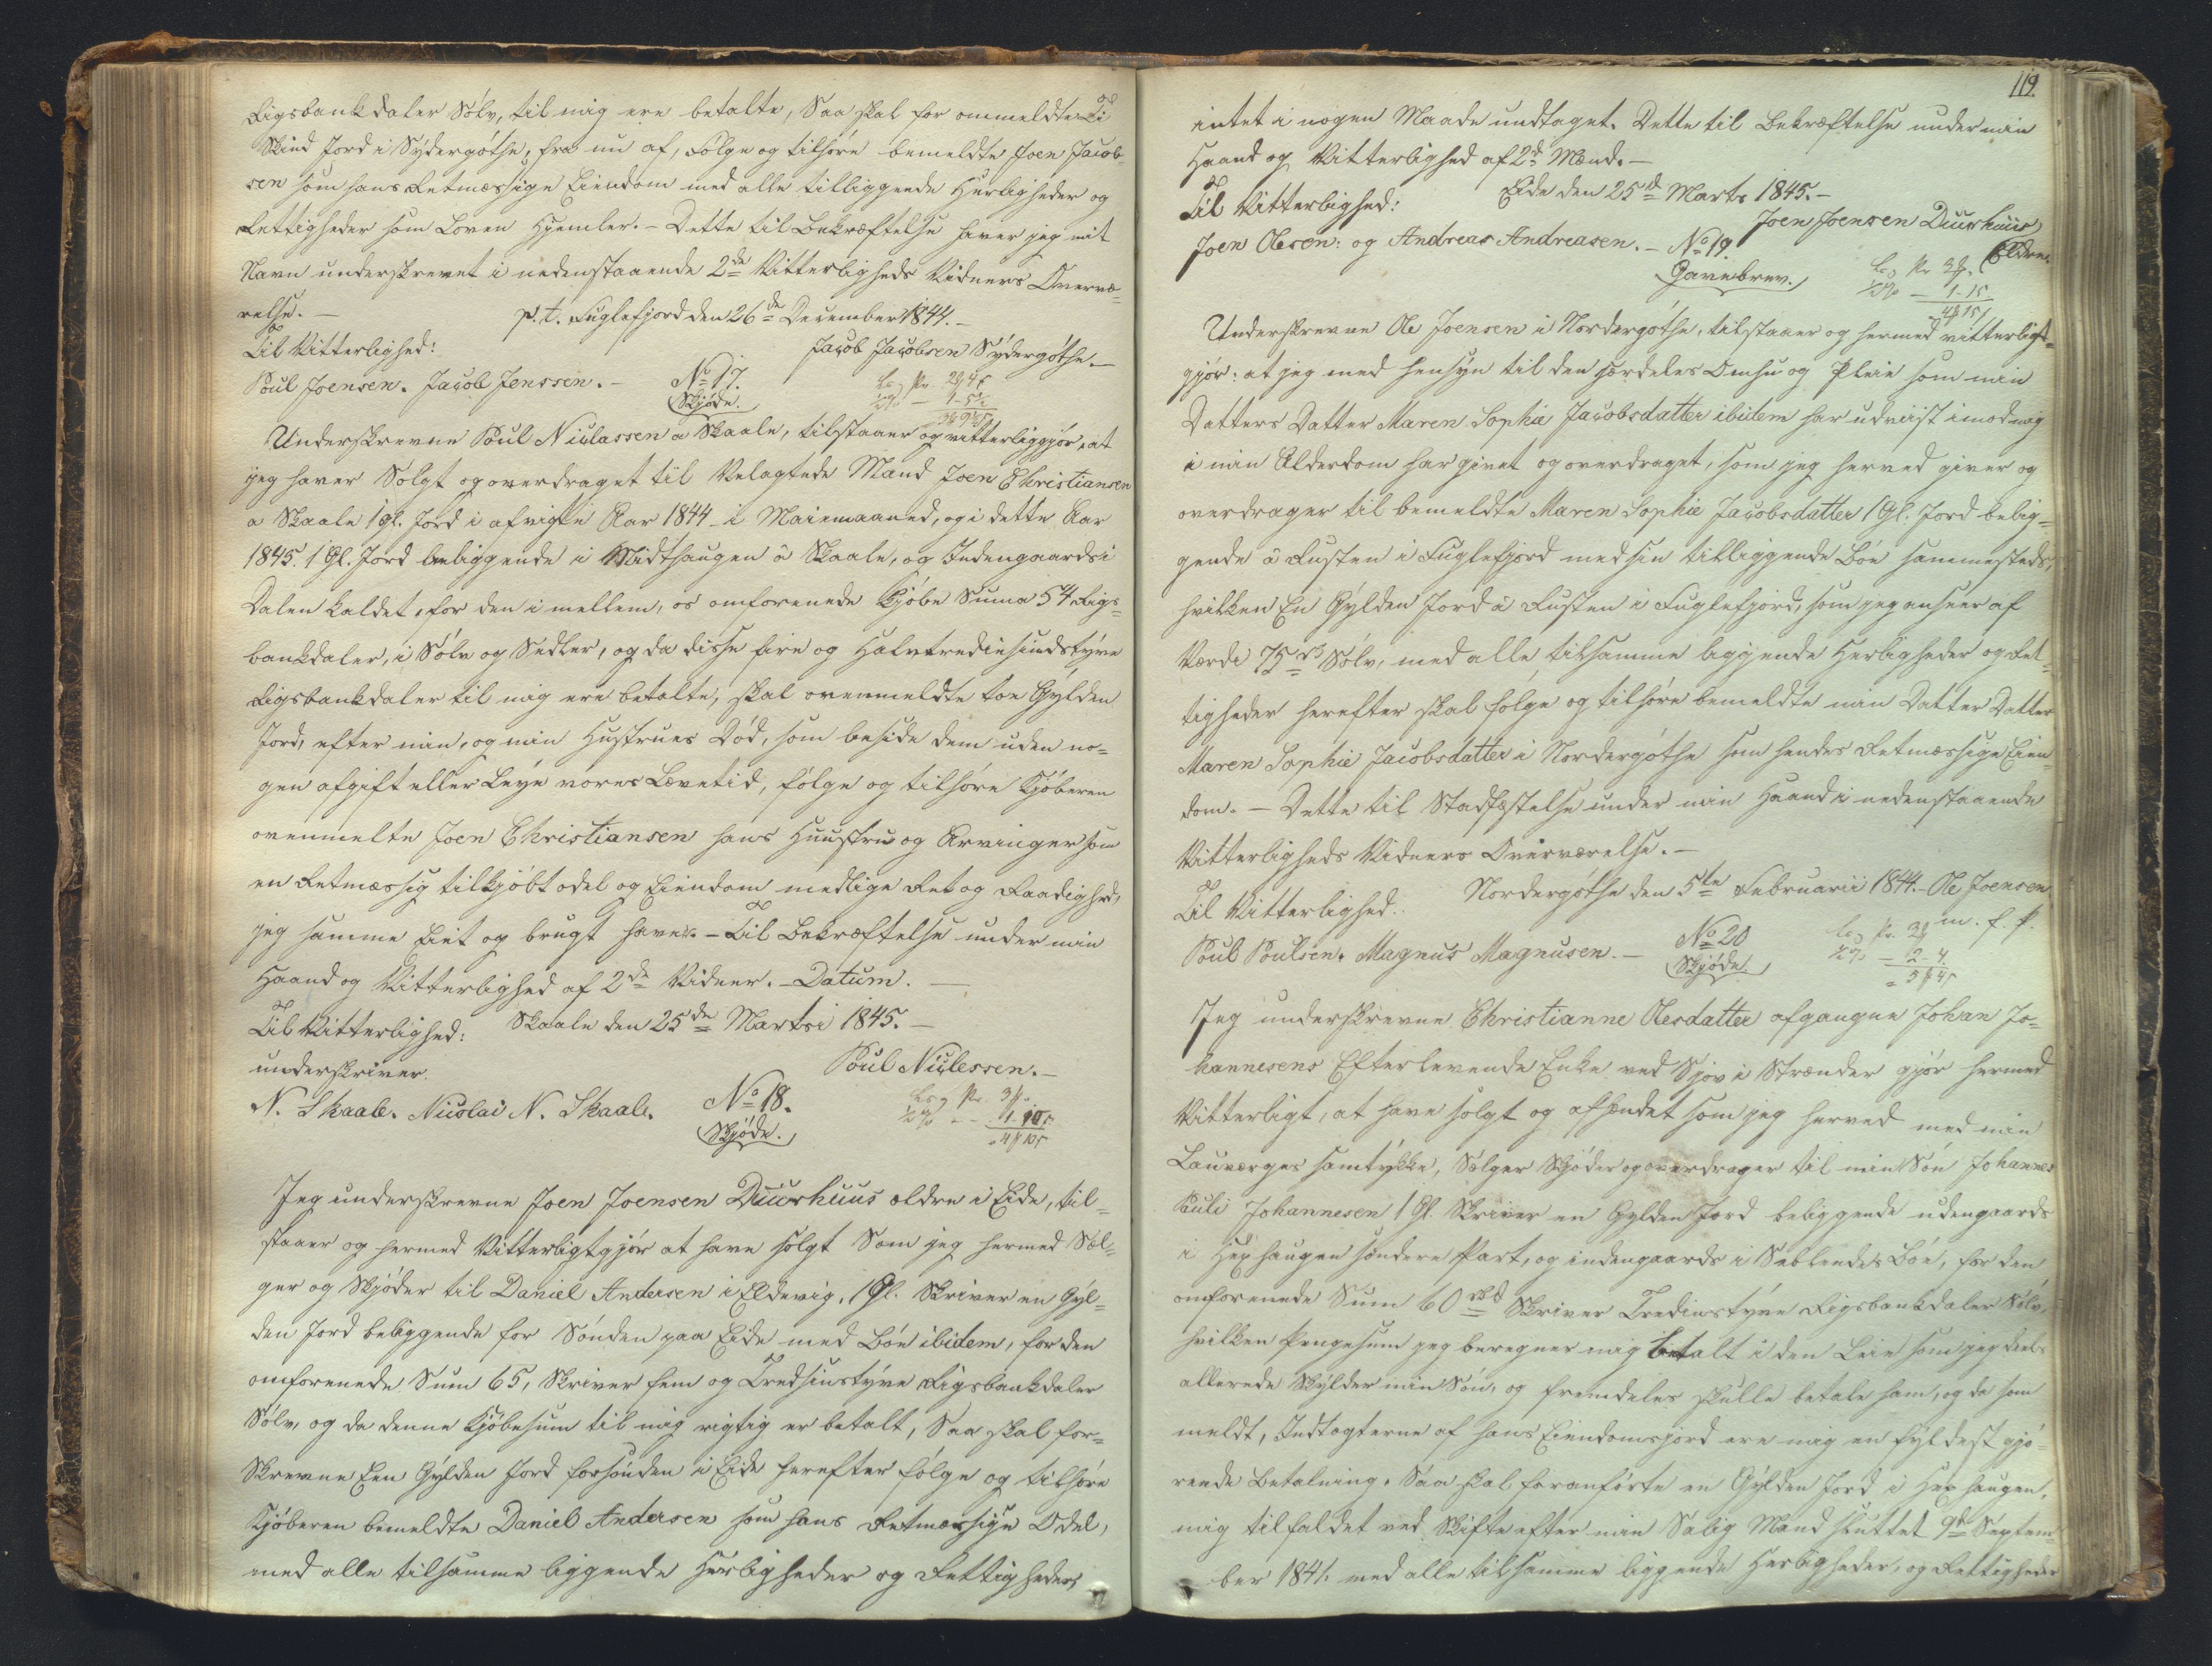 Rigsbankdaler Sölv, til mig ere betalte, Saa skal for ommeldte Ti
Skind Jord i Sydergöthe, fra nu af, følge og tilhöre bemeldte Joen Jacob-
sen som hans Retmæssige Eiendom med alle tilliggende Herligheder og
Rettigheder som Loven Hjemler. - Dette til Bekræftelse haver jeg mit
Navn underskrevet i nedenstaaende 2de Vitterligheds Vidners Overvæ-
relse. - p. t. Fuglefjord den 26de December 1844. -
Til Vitterlighed: Jacob Jacobsen Sydergöthe. -
Poul Joensen. Jacob Jenssen. - No 17.
Skjöde.
Underskrevne Poul Niclassen a Skaale, tilstaaer og vitterliggjör, at
jeg haver Solgt og overdraget til Velagtede Mand Joen Christiansen
a Skaale 1 gl. Jord i afvigte Aar 1844 i Maiemaaned, og i dette Aar
1845. 1 Gl. Jord beliggende i Midthaugen a Skaale, og Indengaards i
Dalen kaldet, for den i mellem, os omforenede Kjöbe Suma 54 Rigs-
bankdaler, i Sölv og Sedler, og da disse fire og Halvtrediesindstyve
Rigsbankdaler til mig ere betalte, skal ovenmeldte toe Gylden
Jord, efter min, og min Hustrues Död, som beside dem uden no-
gen afgift eller Leye vores Levetid, fölge og tilhöre Kjöberen
ovenmelte Joen Christiansen hans Huustru og Arvinger som
en Retmæssig tilkjöbt odel og Eiendom med lige Ret og Raadighed,
jeg samme Eiet og brugt haver. - Til Bekræftelse under min
Haand og Vitterlighed af 2de Vidner. - Datum. -
Til Vitterlighed: Skaale den 25de Martsi 1845. -
underskriver. Poul Niclessen. -
N. Skaale. Nicolai N. Skaale. No 18.
Skjöde.
Jeg underskrevne Joen Joensen Duurhuus ældre i Eide, til-
staaer og hermed Vitterligtgjör at have solgt Som jeg hermed Sæl-
ger og Skjöder til Daniel Andersen i Eldevig, 1 Gl. Skriver en Gyl-
den Jord beliggende for Sönden paa Eide med Böe ibidem, for den
omforenede Sum 65, Skriver fem og Tredsinstyve Rigsbankdaler
Sölv, og da denne Kjöbesum til mig rigtig er betalt, Saa skal for-
Skrevne Een Gylden Jord forsönden i Eide herefter fölge og tilhöre
Kjöberen bemeldte Daniel Andersen som hans Retmæssige Odel,
med alle tilsamme liggende Herligheder og Rettigheder,
119.
intet i nogen Maade undtaget. Dette til Bekræftelse under min
Haand og Vitterlighed af 2de Mænd. -
Til Vitterlighed: Eide den 25de Marts 1845. -
Joen Joensen Duurhuus
Joen Olesen: og Andreas Andreasen. - No 19 Eldre.
Gavebrev.
Underskrevne Ole Joensen i Nordregöthe, tilstaaer og hermed vitterligt-
gjör: at jeg med hensyn til den særdeles Omhu og Pleie som min
Datters Datter Maren Sophie Jacobsdatter ibidem har udviist imod mig
i min Alderdom har givet og overdraget, som jeg herved giver og
overdrager til bemeldte Maren Sophie Jacobsdatter 1 Gl. Jord belig-
gende a Rusten i Fuglefjord med sin tilliggende Böe sammesteds,
hvilken En Gylden Jord a Rusten i Fuglefjord, som jeg anseer af
Værdi 75 rb Sölv, med alle tilsamme liggende Herligheder og Ret-
tigheder herefter skal fölge og tilhöre bemeldte min Datter Datter
Maren Sophie Jacobsdatter i Nordregöthe som hendes Retmæssige Eien-
dom. - Dette til Stadfæstelse under min Haand i nedenstaaende
Vitterligheds Vidners Overværelse. -
Til Vitterlighed. Nordregöthe den 5te Februarii 1844. - Ole Joensen
m. f. P.
Poul Poulsen. Magnus Magnusen. - No 20
Skjöde.
Jeg underskrevne Christianne Olesdatter afgangne Johan Jo-
hannesens Efterlevende Enke ved Sjov i Strænder gjör hermed
Vitterligt, at have solgt og afhændet som jeg herved med min
Lauværges samtykke, Sælger Skjöder og overdrager til min Sön Johannes
Puli Johannesen 1 Gl. Skriver en Gylden Jord beliggende udengaards
i Heghaugen söndere Part, og indengaards i Böe, for den
omforenede Sum 60 rbd Skriver Tredinstyve Rigsbankdaler Sölv,
hvilken Pengesum jeg beregner mig betalt i den Leie som jeg deels
allerede Skylder min Sön, og fremdeles skulle betale ham, og da som
meldt, Indtægterne af hans Eiendomsjord ere mig en fyldest gjö-
rende Betalning. Saa skal foranförte en Gylden Jord i Heghaugen,
mig tilfaldet ved Skifte efter min Salig Mand sluttet 9de Septem-
ber 1841. med alle tilsamme liggende Herligheder, og Rettigheder